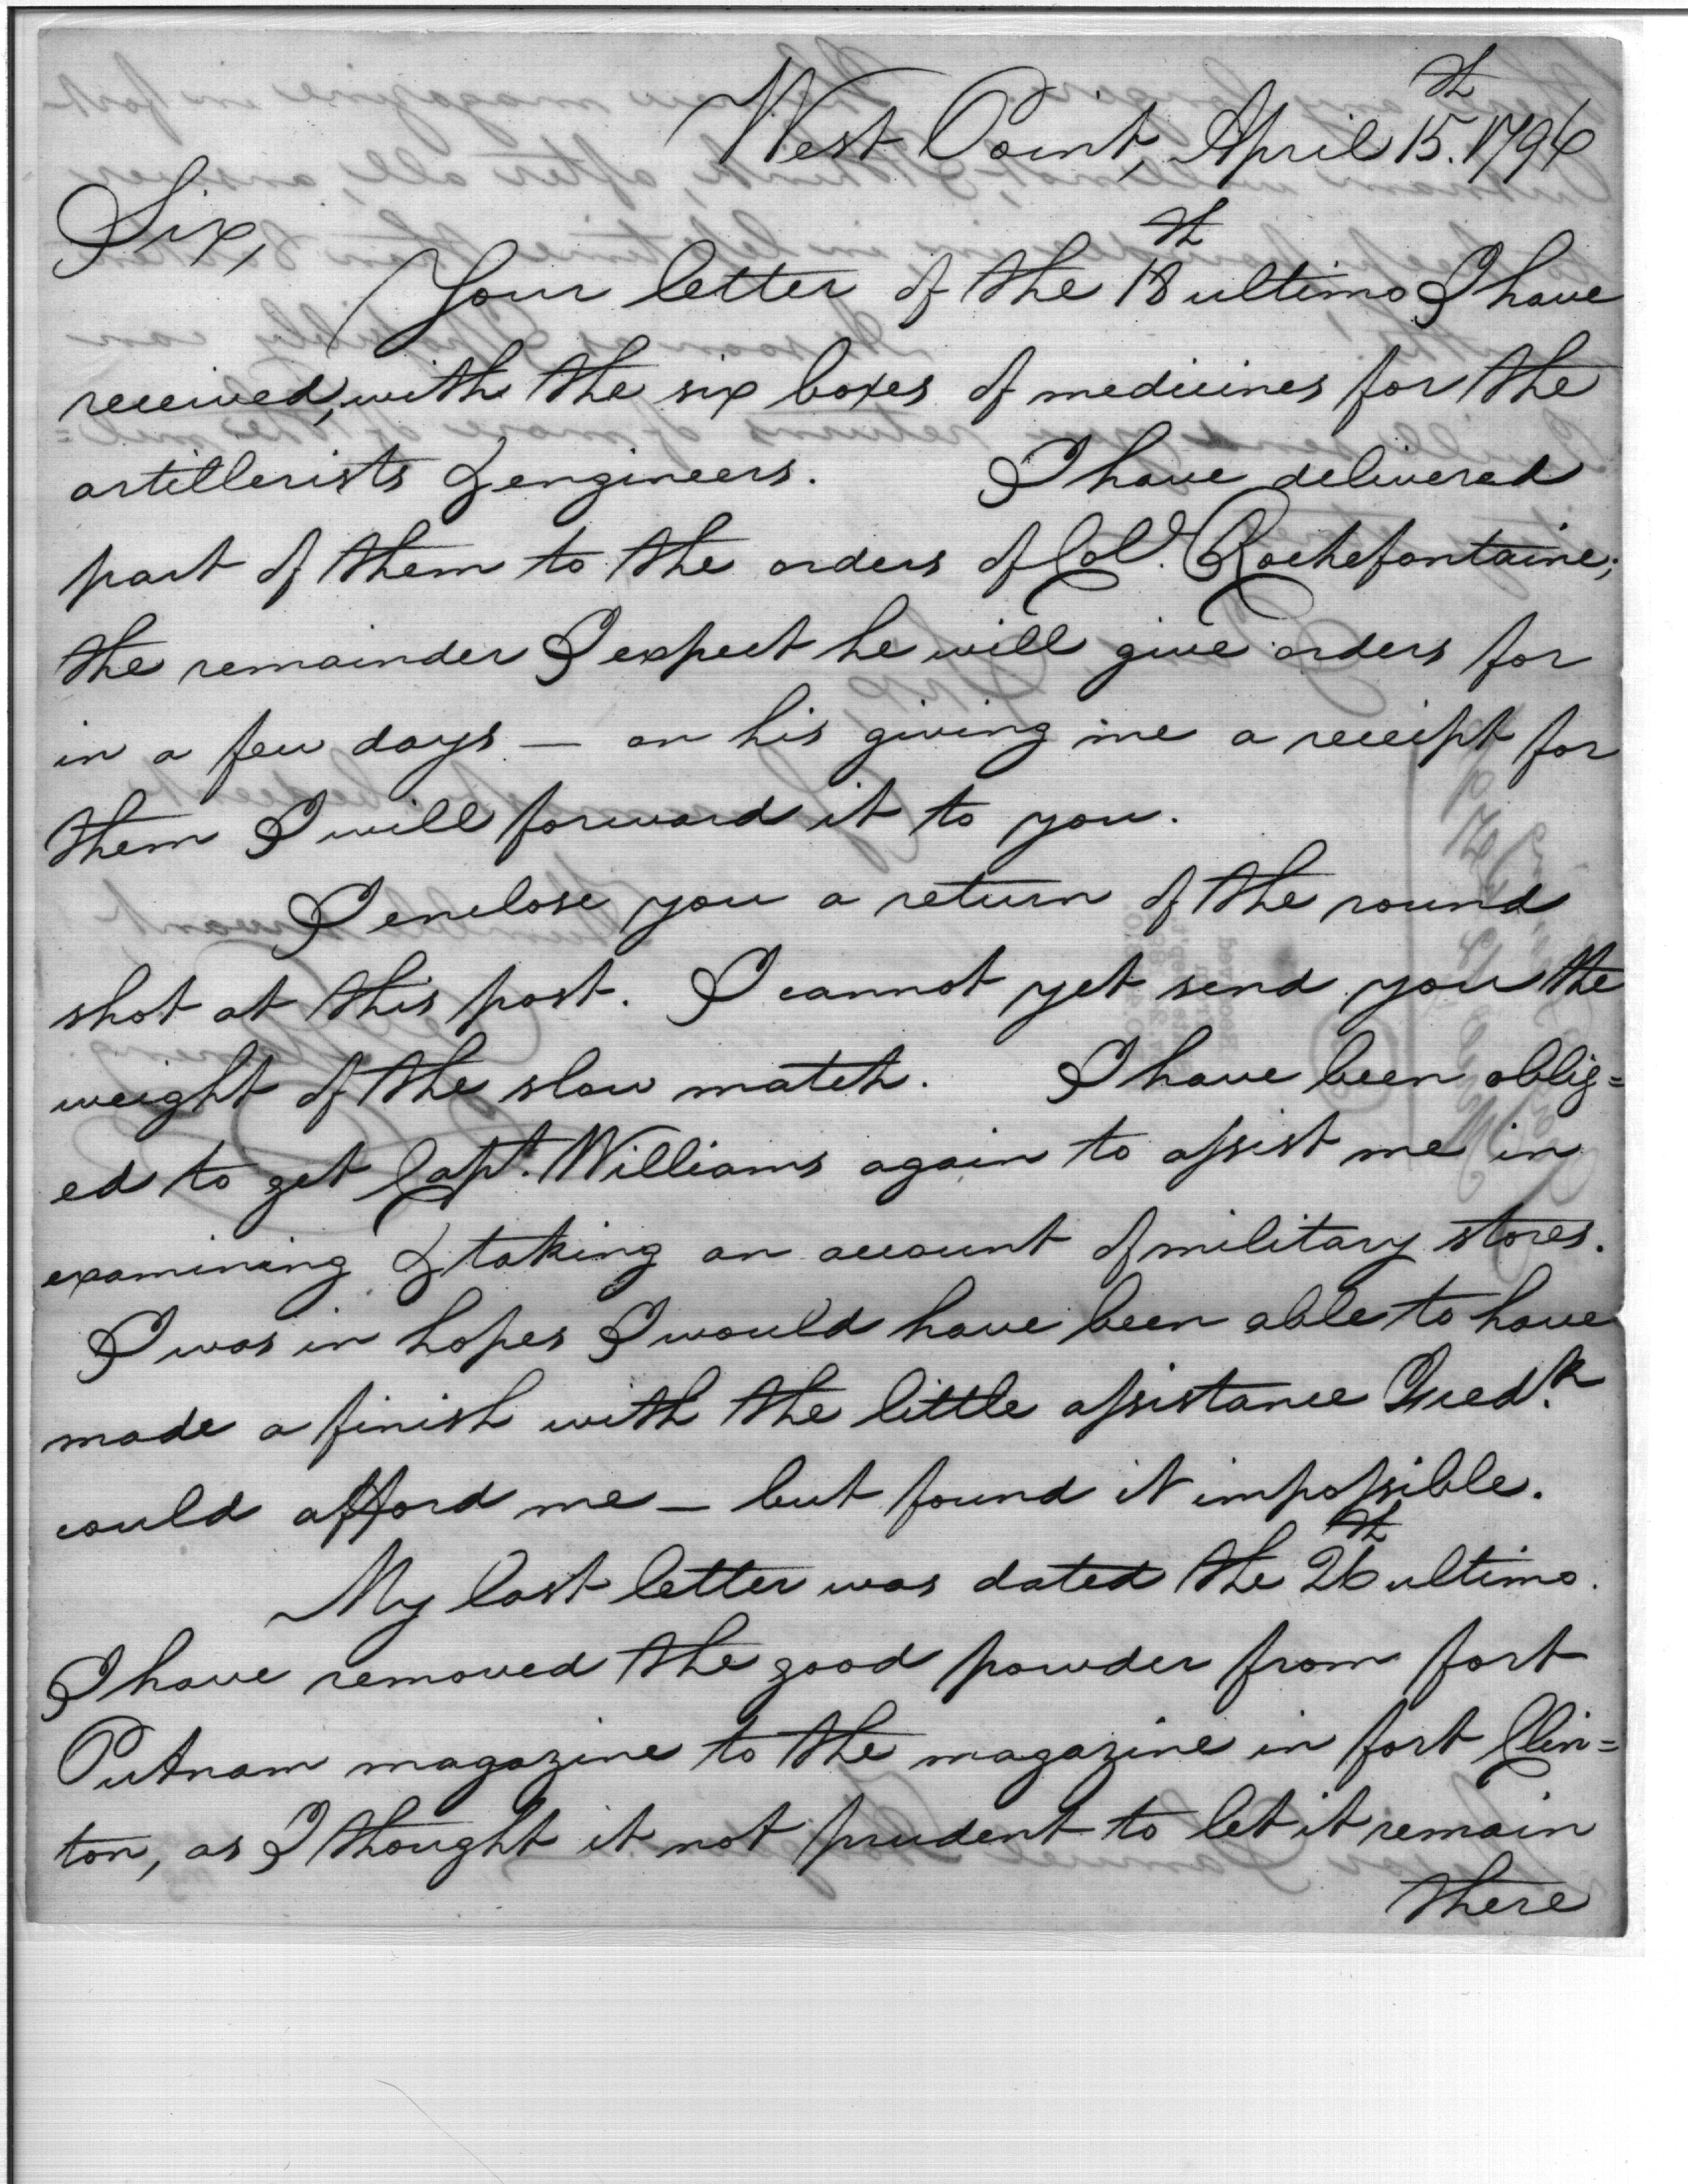 West Point, April 15th. 1796
Sir,
Your letter of the 18th ultimo I have
received, with the six boxes of medicines for the
artillerists & engineers. I have delivered
part of them to the orders of Col. Rochefontaine;
the remainder I expect he will give orders for
in a few days — on his giving me a receipt for
them I will forward it to you.
I enclose you a return of the round
shot at this post. I cannot yet send you the
weight of the slow match. I have been oblig=
ed to get Capt. Williams again to assist me in
examining & taking an account of military stores.
I was in hopes I would have been able to have
made a finish with the little assistance Fred.k
could afford me — but found it impossible.
My last letter was dated the 26th ultimo.
I have removed the good powder from fort
Putnam magazine to the magazine in fort Clin=
ton, as I thought it not prudent to let it remain
there